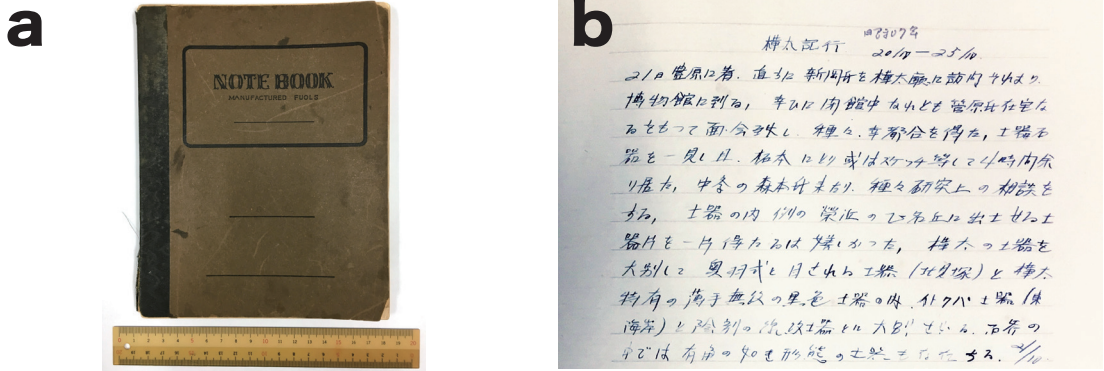 a
NOTE BOOK
MANUFACTURED FUOLS
b
樺太記行 昭和7年
20/10 — 25/10
21日豊原に着、直ちに新聞所を樺太廳に訪内 それより
博物館に到る、幸ひに閉館中なれども菅原氏在室な
るをもつて面会致し、種々、幸都合を得た、土器石
器を一見し且、拓本にとり或はスケッチ等して4時間余
り居た、中冬の森本氏来たり、種々研究上の相談を
する、土器の内 例の栄浜の 丘に出土せる土
器片を一片得たるは嬉しかつた、樺太の土器を
大別して 奥羽式と目される土器(北貝塚)と樺太
特有の薄手無紋の黒色土器の内、イトクバ土器(東
海岸)と 土器とに大別 石器の
中では有角の如き形態の土器も